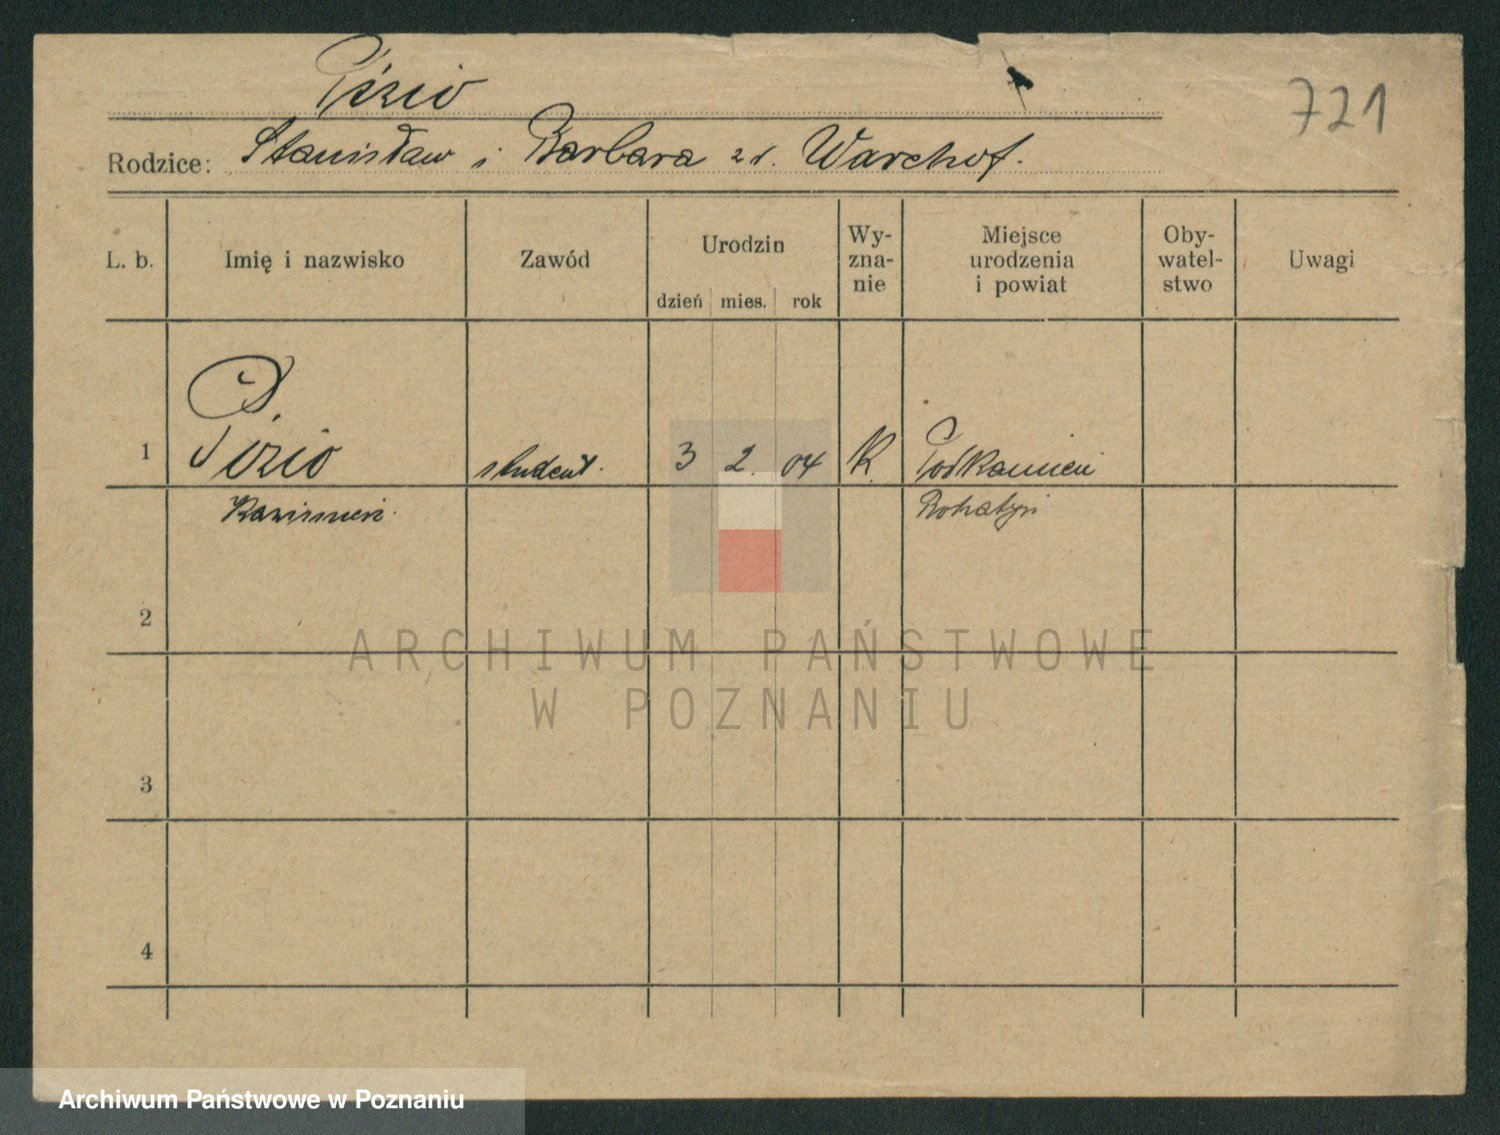 Pizio
721
Rodzice: Stanisław i Barbara zd. Warchoł.
L. b. Imię i nazwisko Zawód Urodzin Wy-zna-nie Miejsce urodzenia i powiat Oby-watel-stwo Uwagi
dzień mies. rok
1 Pizio student. 3 2. 04 K. Podkamień
Kazimierz. Rohatyn
2
3
4
ARCHIWUM PAŃSTWOWE
W POZNANIU
Archiwum Państwowe w Poznaniu